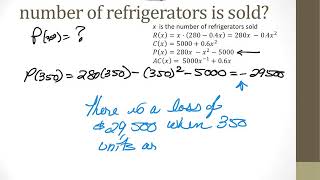 number of refrigerators is sold?
x is the number of refrigerators sold
R(x) = x · (280 − 0.4x) = 280x − 0.4x²
C(x) = 5000 + 0.6x²
P(x) = 280x − x² − 5000
AC(x) = 5000x⁻¹ + 0.6x
P(350) = ?
P(350) = 280(350) − (350)² − 5000 = −29500
There is a loss of
$29,500 when 350
units are